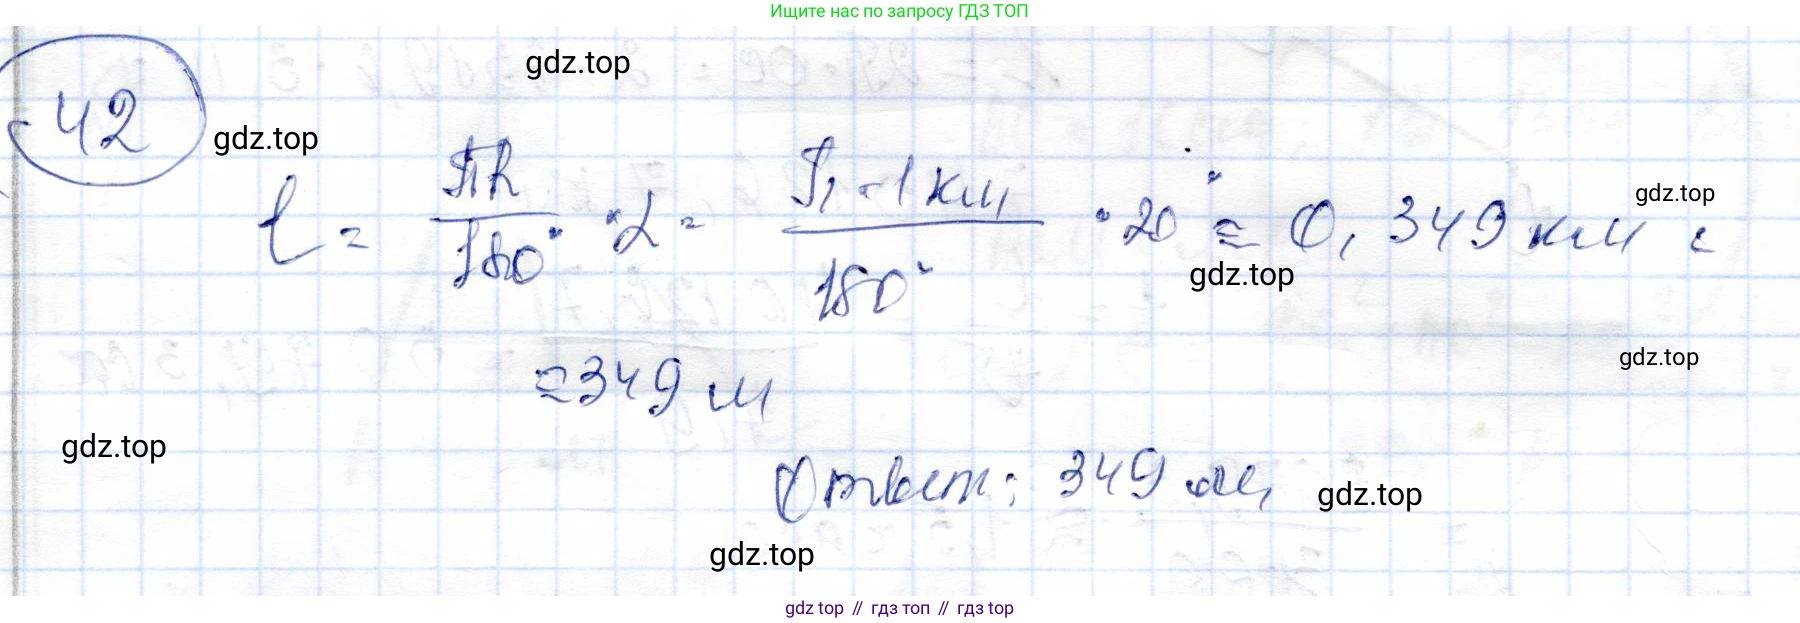 Ищите нас по запросу ГДЗ ТОП
gdz.top
42
gdz.top
l = πR / 180° · α = π · 1 км / 180° · 20° ≈ 0,349 км =
gdz.top
gdz.top
≈ 349 м
gdz.top
gdz.top
Ответ: 349 м
gdz.top
gdz.top
gdz top // гдз топ // гдз top